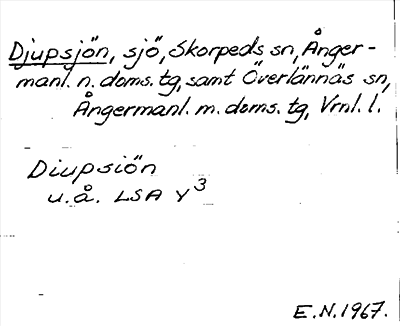 Djupsjön, sjö, Skorpeds sn, Ånger-
manl. n. doms. tg, samt Överlännäs sn,
Ångermanl. m. doms. tg, Vrnl. l.
Diupsiön
u.å. LSA Y3
E.N. 1967.